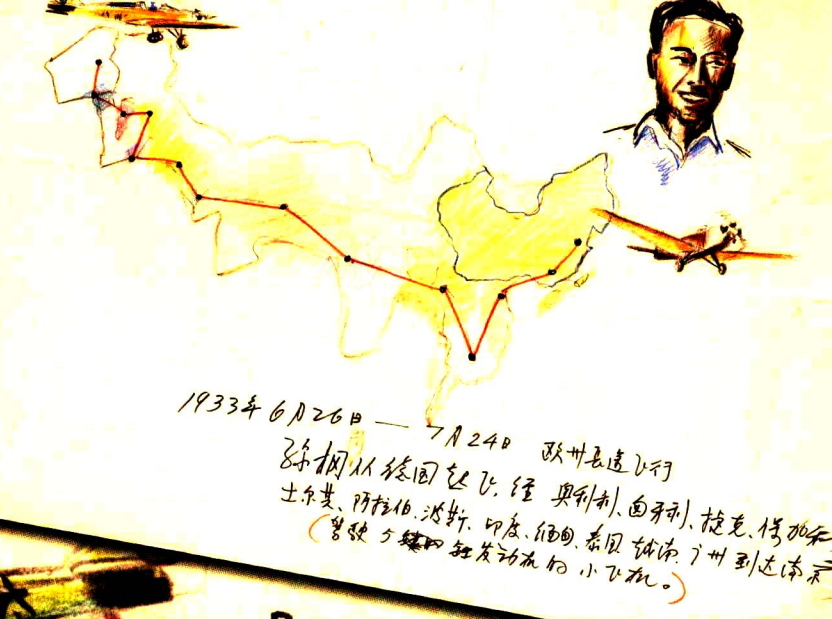 1933年6月26日——7月24日 欧州長途飞行
孙桐从德国起飞,经奥利利、匈牙利、捷克、保加
土尔其、阿拉伯、波斯、印度、缅甸、泰国越南、广州到达南京
(驾驶 发动机的小飞机。)